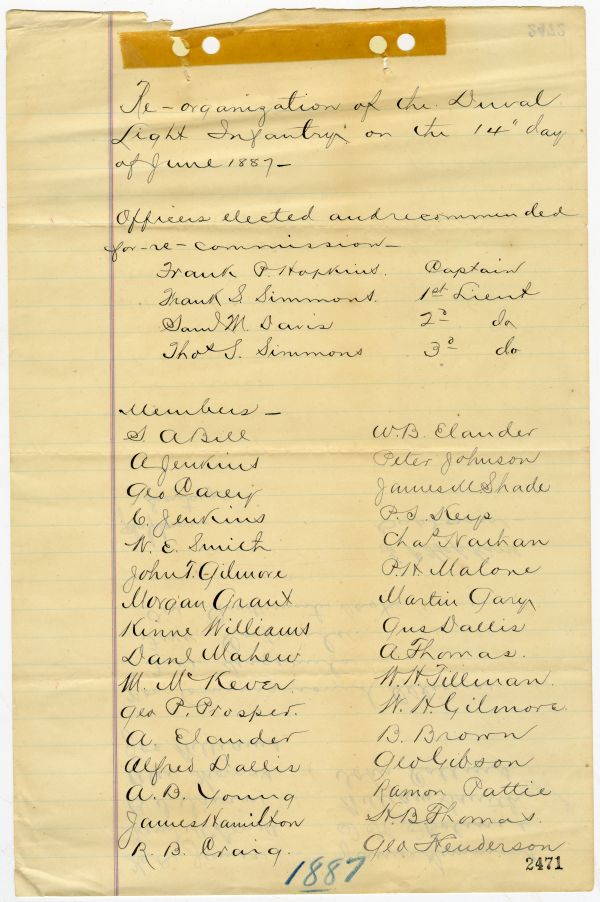 Re-organization of the Duval
Light Infantry, on the 14" day
of June 1887-
Officers elected and recommended
for-re-commission-
Frank P. Hopkins. Captain
Frank S. Simmons. 1st Lieut
Saml M. Davis 2d do
Thos S. Simmons 3d do
Members-
S. A Bill
A Jenkins
Geo Careig
C. Jenkins
W. E. Smith
John T. Gilmore
Morgan Grant
Kinne Williams
Danl Mahew
M. McKever.
Geo P. Prosper.
A. Elander
Alfred Dallis
A. B. Young
James Hamilton
R. B. Craig.
W. B. Elander
Peter Johnson
James M Shade
P. S. Keys
Chas Nathan
P. H Malone
Martin Gary
Gus Dallis
A Thomas.
W. H. Tillman.
W. H. Gilmore.
B. Brown
Geo Gibson
Ramon Pattie
H B Thomas.
Geo Henderson
1887
2471